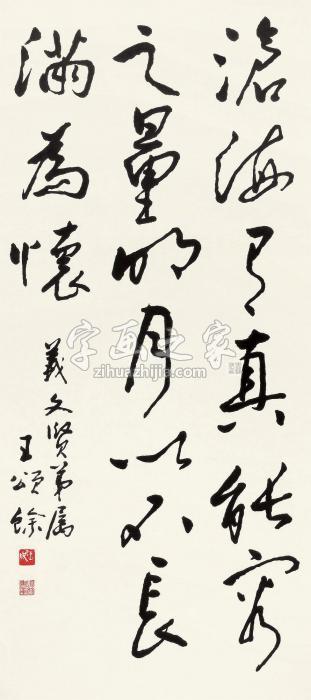 滄海有真能容
之量明月以不長
滿為懷
義文賢弟屬
王頌餘
字画之家
zihuazhijia.com